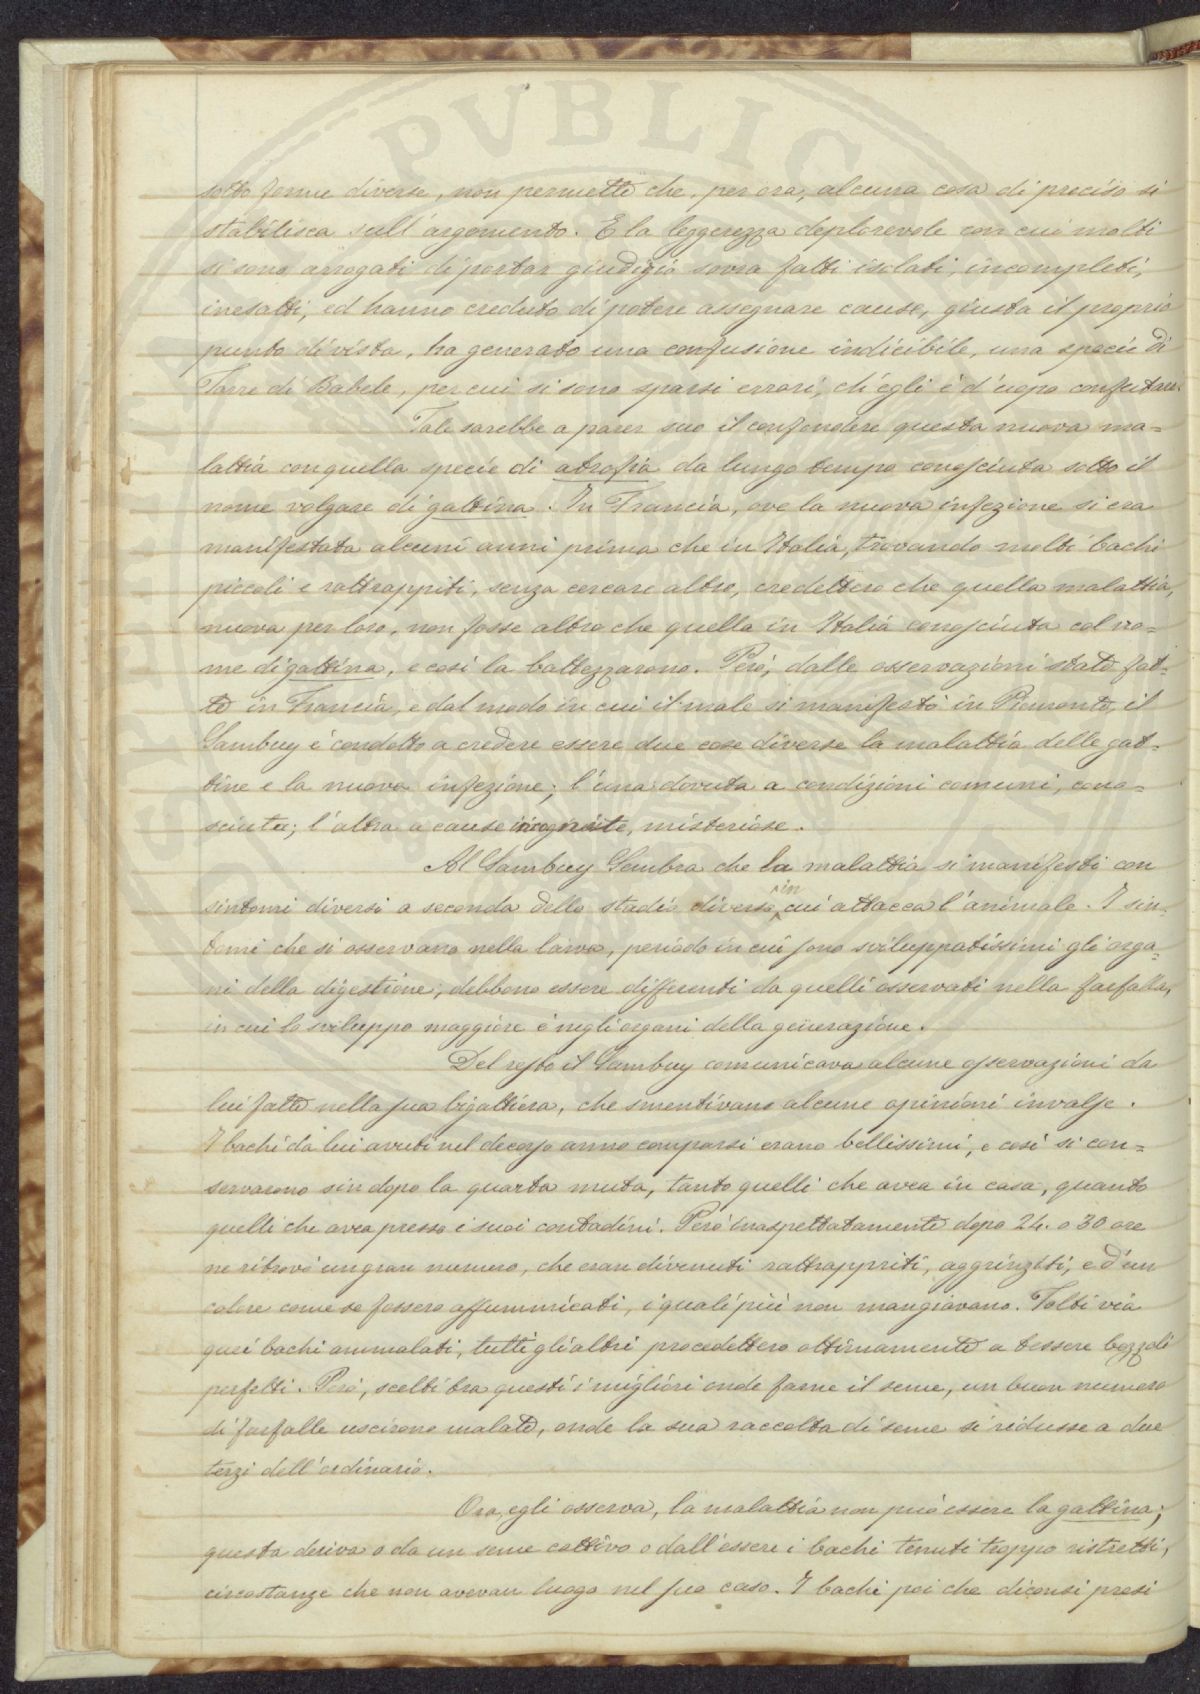 sotto forme diverse, non permette che, per ora, alcuna cosa di preciso si
stabilisca sull'argomento. E la leggerezza deplorevole con cui molti
si sono arrogati di portar giudizio sovra fatti isolati, incompleti,
inesatti, ed hanno creduto di potere assegnare cause, giusta il proprio
punto di vista, ha generato una confusione indicibile, una specie di
Torre di Babele, per cui si sono sparsi errori, ch'egli è d'uopo confutare.
Tale sarebbe a parer suo il confondere questa nuova ma=
lattia con quella specie di atrofia da lungo tempo conosciuta sotto il
nome volgare di gattina. In Francia, ove la nuova infezione si era
manifestata alcuni anni prima che in Italia, trovando molti bachi
piccoli e rattrappiti, senza cercare altro, credettero che quella malattia,
nuova per loro, non fosse altro che quella in Italia conosciuta col no=
me di gattina, e così la battezzarono. Però, dalle osservazioni state fat=
te in Francia, e dal modo in cui il male si manifestò in Piemonte, il
Sambuy è condotto a credere essere due cose diverse la malattia delle gat=
tine e la nuova infezione; l'una dovuta a condizioni comuni, cono=
sciute; l'altra a cause incognite, misteriose.
Al Sambuy sembra che la malattia si manifesti con
sintomi diversi a seconda dello stadio diverso in cui attacca l'animale. I sin=
tomi che si osservano nella larva, periodo in cui sono sviluppatissimi gli orga=
ni della digestione, debbono essere differenti da quelli osservati nella farfalla,
in cui lo sviluppo maggiore è negli organi della generazione.
Del resto il Sambuy comunicava alcune osservazioni da
lui fatte nella sua bigattiera, che smentivano alcune opinioni invalse.
I bachi da lui avuti nel decorso anno comparsi erano bellissimi, e così si con=
servarono sin dopo la quarta muta, tanto quelli che avea in casa, quanto
quelli che avea presso i suoi contadini. Però inaspettatamente dopo 24. o 30 ore
ne ritrovò un gran numero, che eran divenuti rattrappriti, aggrinziti, e d'un
colore come se fossero affummicati, i quali più non mangiavano. Tolti via
quei bachi ammalati, tutti gli altri procedettero ottimamente a tessere bozzoli
perfetti. Però, scelti tra questi i migliori onde farne il seme, un buon numero
di farfalle uscirono malate, onde la sua raccolta di seme si ridusse a due
terzi dell'ordinario.
Ora, egli osserva, la malattia non può essere la gattina;
questa deriva o da un seme cattivo o dall'essere i bachi tenuti troppo ristretti,
circostanze che non avevan luogo nel suo caso. I bachi poi che diconsi presi